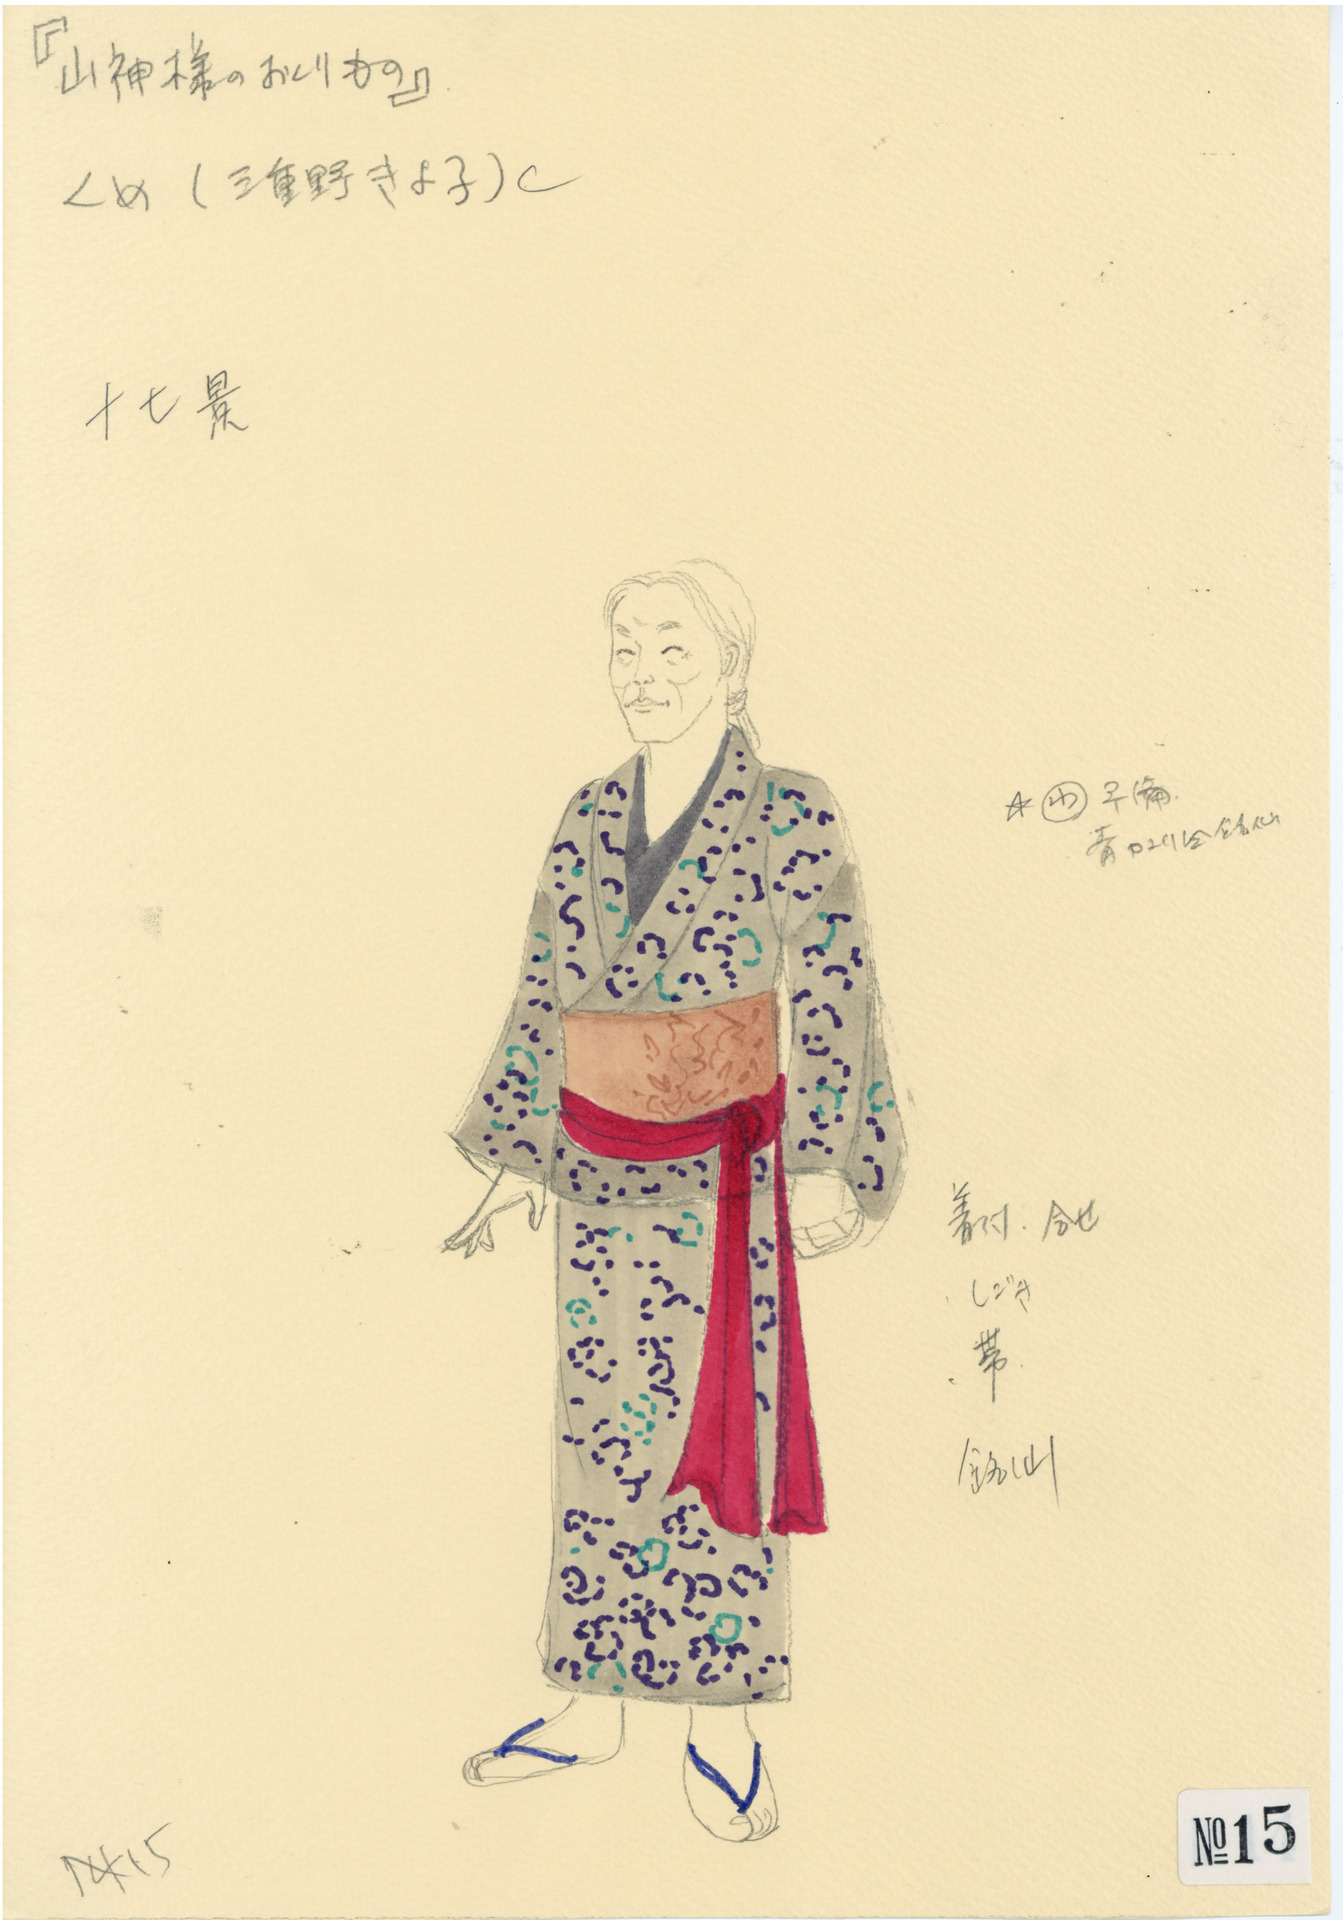 『山神様のおくりもの』
くめ(三重野きよ子)C
十七景
予備
着付. 合せ
しごき
帯
銘仙
№15
15